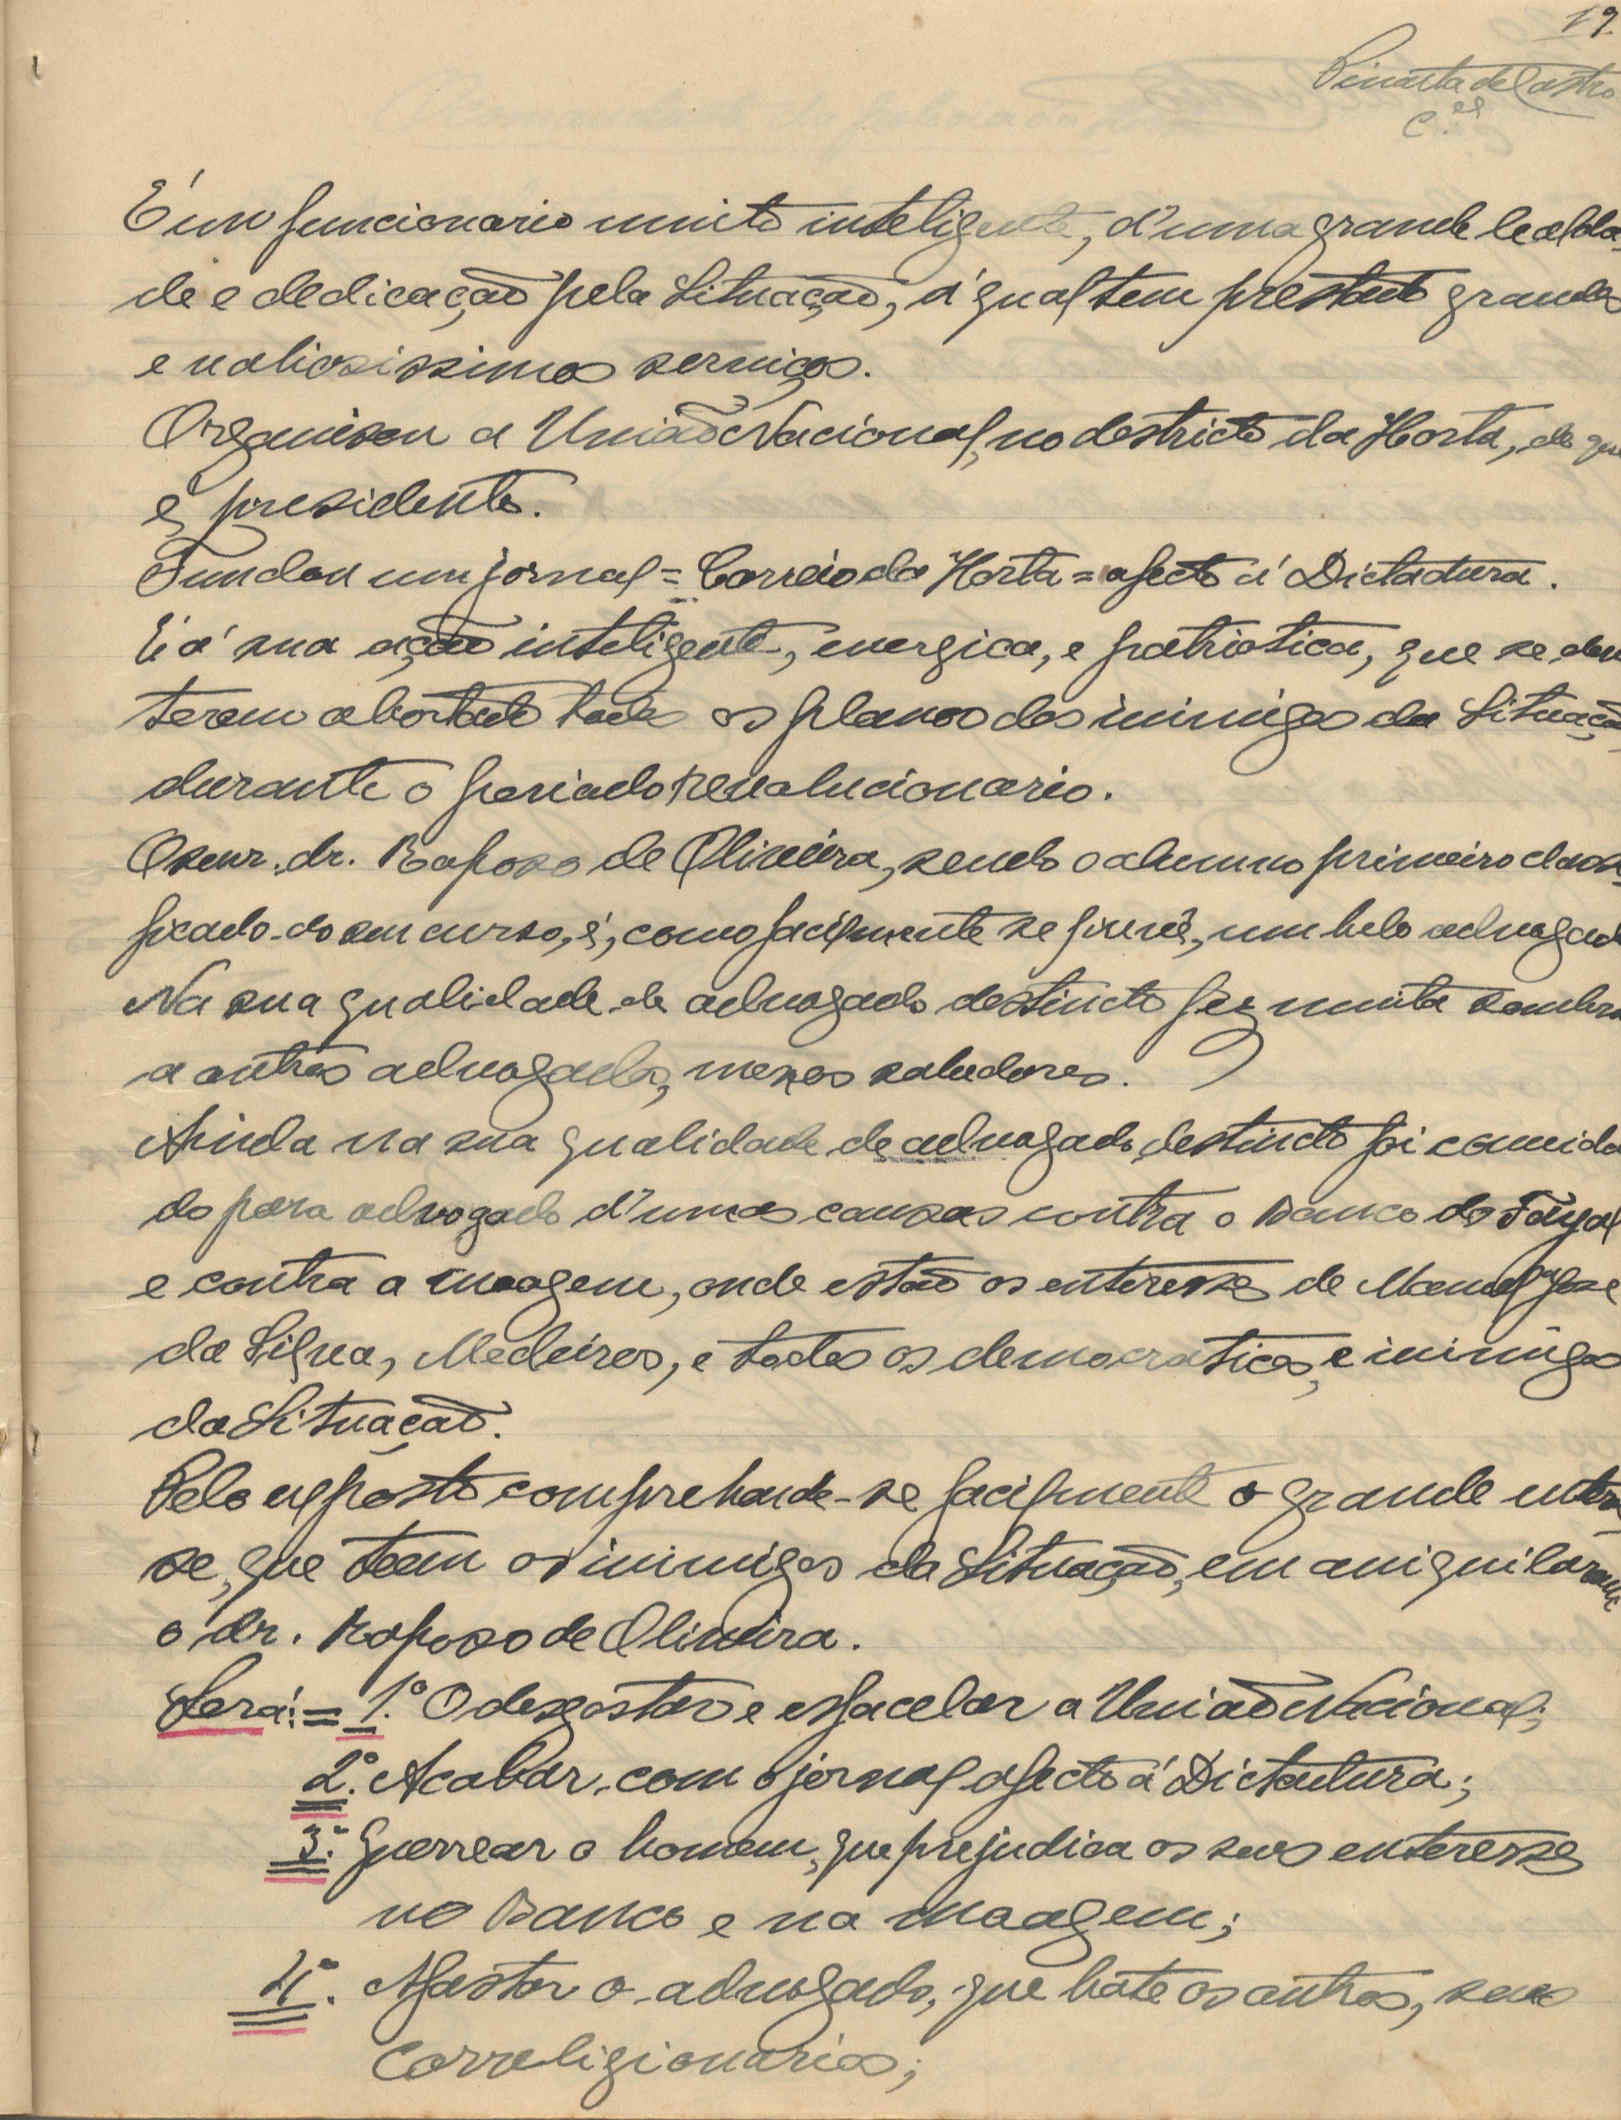 19.
Pimenta de Castro
C.el
É um funcionario muito inteligente, d'uma grande lealda-
de e dedicação pela Situação, á qual tem prestado grandes
e valiosissimos serviços.
Organisou a União Nacional, no destricto da Horta, de que
é presidente.
Fundou um jornal = Correio da Horta = afecto á Dictadura.
É á sua ação inteligente, energica, e patriotica, que se deve
terem abortado todos os planos dos inimigos da Situação,
durante o periodo revolucionario.
O snr. dr. Raposo de Oliveira, sendo o alumno primeiro classi-
ficado do seu curso, é, como facilmente se prevê, um belo advogado
Na sua qualidade de advogado destincto fez muita sombra
a outros advogados, menos sabedores.
Ainda na sua qualidade de advogado destincto foi convida
do para advogado d'umas causas contra o Banco do Fayal
e contra a moagem, onde estão os enteresses de Manuel José
da Silva, Medeiros, e todos os democraticos, e inimigos
da Situação.
Pelo exposto comprehende-se facilmente o grande interes
se, que teem os inimigos da Situação, em aniquilarem
o dr. Raposo de Oliveira.
Será: = 1.º O desgostar e esfacelar a União Nacional;
2.º Acabar com o jornal afecto á Dictadura;
3.º Guerrear o homem, que prejudica os seus enteresses
no Banco e na moagem;
4.º Afastar o advogado, que bate os outros, seus
correligionarios;